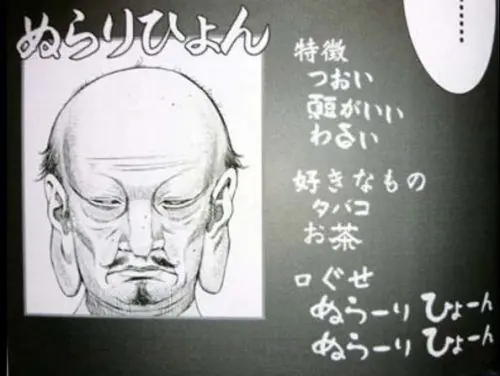 ぬらりひょん
特徴
つおい
頭がいい
わるい
好きなもの
タバコ
お茶
口ぐせ
ぬらーりひょーん
ぬらーりひょーん
………